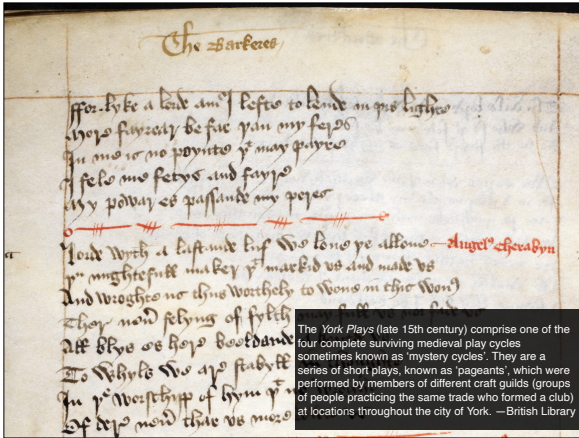 The Barkeres
ffor lyke a lorde am I lefte to lende in þis lighte
More fayrear be far þan my feres
In me is no poynte þt may payre
I fele me fetys and fayre
My powar es passande my peres
lorde wyth a lastande luf we loue þe allone
Angels cherabyn
þu mightefull maker þt markid vs and made vs
And wroghte us thus worthely to wone in this won
Ther neuer felyng of fylth may full vs nor fade vs
All blys es here beeldande
To whyls we are stabyll
In þe worschipp of hym
Of dere neuer thar vs more
The York Plays (late 15th century) comprise one of the
four complete surviving medieval play cycles
sometimes known as 'mystery cycles'. They are a
series of short plays, known as 'pageants', which were
performed by members of different craft guilds (groups
of people practicing the same trade who formed a club)
at locations throughout the city of York. —British Library